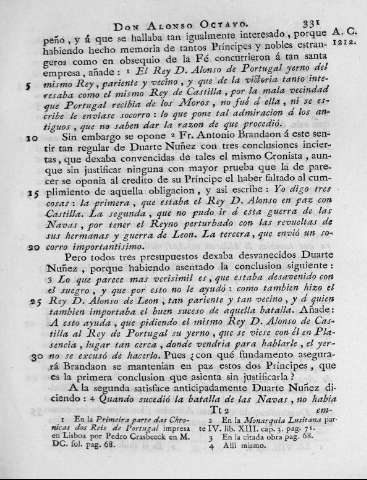 DON ALONSO OCTAVO. 331
peño, y á que se hallaba tan igualmente interesado, porque
A. C.
1212.
habiendo hecho memoria de tantos Príncipes y nobles estran-
geros como en obsequio de la Fé concurrieron á tan santa
empresa, añade: 1 El Rey D. Alonso de Portugal yerno del
5 mismo Rey, pariente y vecino, y que de la victoria tanto inte-
resaba como el mismo Rey de Castilla, por la mala vecindad
que Portugal recibia de los Moros, no fué á ella, ni se es-
cribe le enviase socorro: lo que pone tal admiracion á los an-
tiguos, que no saben dar la razon de que procedió.
10 Sin embargo se opone 2 Fr. Antonio Brandaon á este sen-
tir tan regular de Duarte Nuñez con tres conclusiones incier-
tas, que dexaba convencidas de tales el mismo Cronista, aun-
que sin justificar ninguna con mayor prueba que la de pare-
cer se oponia al credito de su Príncipe el haber faltado al cum-
15 plimiento de aquella obligacion, y asi escribe: Yo digo tres
cosas: la primera, que estaba el Rey D. Alonso en paz con
Castilla. La segunda, que no pudo ir á esta guerra de las
Navas, por tener el Reyno perturbado con las revueltas de
sus hermanas y guerra de Leon. La tercera, que envió un so-
20 corro importantísimo.
Pero todos tres presupuestos dexaba desvanecidos Duarte
Nuñez, porque habiendo asentado la conclusion siguiente:
3 Lo que parece mas verisimil es, que estaba desavenido con
el suegro, y que por esto no le ayudó: como tambien hizo el
25 Rey D. Alonso de Leon, tan pariente y tan vecino, y á quien
tambien importaba el buen suceso de aquella batalla. Añade:
A esto ayuda, que pidiendo el mismo Rey D. Alonso de Cas-
tilla al Rey de Portugal su yerno, que se viese con él en Pla-
sencia, lugar tan cerca, donde vendria para hablarle, el yer-
30 no se excusó de hacerlo. Pues ¿con qué fundamento asegura-
rá Brandaon se mantenian en paz estos dos Príncipes, que
es la primera conclusion que asienta sin justificarla?
A la segunda satisfice anticipadamente Duarte Nuñez di-
ciendo: 4 Quando sucedió la batalla de las Navas, no habia
Tt 2 em-
1 En la Primera parte das Chro-
nicas dos Reis de Portugal impresa
en Lisboa por Pedro Crasbeeck en M.
DC. fol. pag. 68.
2 En la Monarquia Lusitana par-
te IV. lib. XIII. cap. 3. pag. 71.
3 En la citada obra pag. 68.
4 Alli mismo.